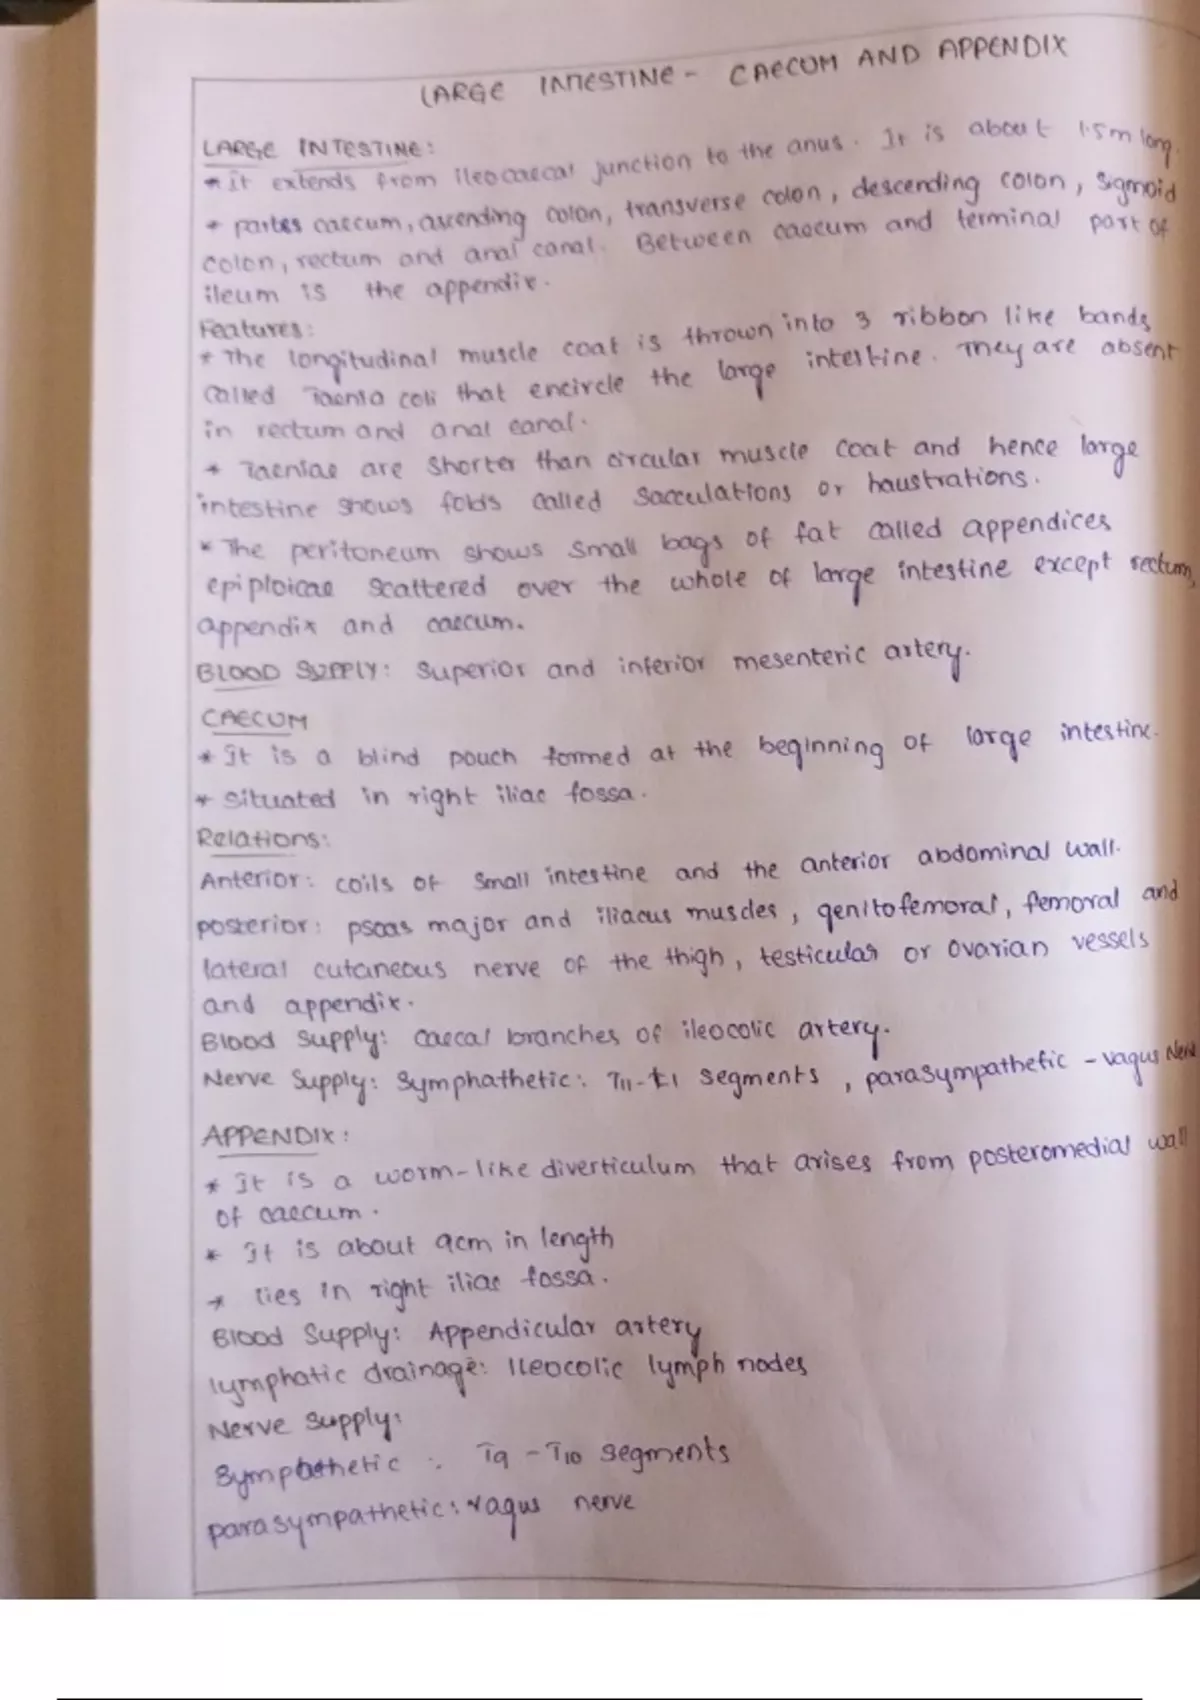 LARGE INTESTINE - CAECUM AND APPENDIX
LARGE INTESTINE:
* it extends from ileocaecal junction to the anus. It is about 1.5m long.
* partes caecum, ascending colon, transverse colon, descending colon, sigmoid
colon, rectum and anal canal. Between caecum and terminal part of
ileum is the appendix.
Features:
* The longitudinal muscle coat is thrown into 3 ribbon like bands
called Taenia coli that encircle the large intestine. They are absent
in rectum and anal canal.
* Taeniae are shorter than circular muscle coat and hence large
intestine shows folds called sacculations or haustrations.
* The peritoneum shows small bags of fat called appendices
epiploicae scattered over the whole of large intestine except rectum,
appendix and caecum.
BLOOD SUPPLY: Superior and inferior mesenteric artery.
CAECUM
* It is a blind pouch formed at the beginning of large intestine.
* situated in right iliac fossa.
Relations:
Anterior: coils of small intestine and the anterior abdominal wall.
posterior: psoas major and iliacus muscles, genitofemoral, femoral and
lateral cutaneous nerve of the thigh, testicular or ovarian vessels
and appendix.
Blood supply: caecal branches of ileocolic artery.
Nerve supply: Symphathetic: T11-L1 segments, parasympathetic - vagus Nerve
APPENDIX:
* It is a worm-like diverticulum that arises from posteromedial wall
of caecum.
* It is about 9cm in length
* lies in right iliac fossa.
Blood supply: Appendicular artery
lymphatic drainage: Ileocolic lymph nodes
Nerve supply:
Sympathetic : T9 - T10 segments
parasympathetic: vagus nerve